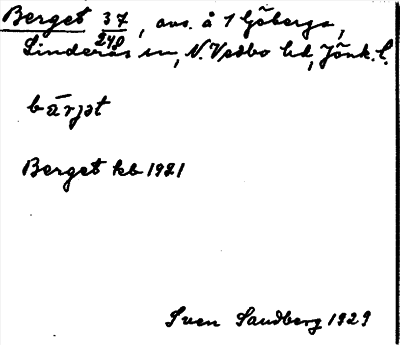 Berget 37/240, avs. å 1 Göberga,
Linderås sn, N. Vedbo hd, Jönk. l.
bärjət
Berget kb 1921
Sven Sandberg 1929